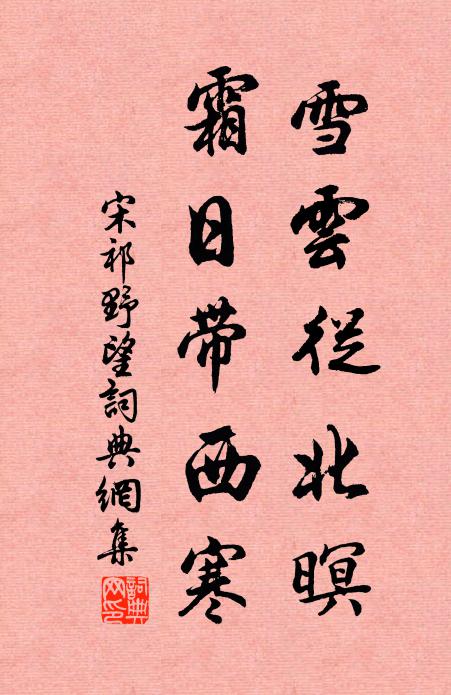 雪雲從北暝
霜日帶西寒
宋祁野望詞典網集
詞典网印